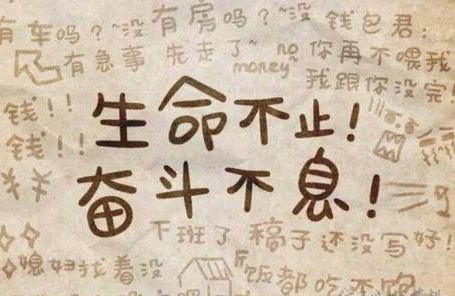 有车吗？~没
有房吗？~没
钱包君：
有急事 先走了~ no money
你再不喂我
我跟你没完！
钱！！
钱！！
生命不止！
奋斗不息！
下班了 稿子还没写好！
媳妇找着没
饭都吃不饱